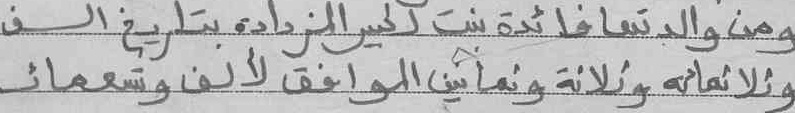 ومن والدتها فائدة بنت لخير المزدادة بتاريخ الف
وثلاثمائه وثلاثة وثمانين الموافق لألف وتسعمائة